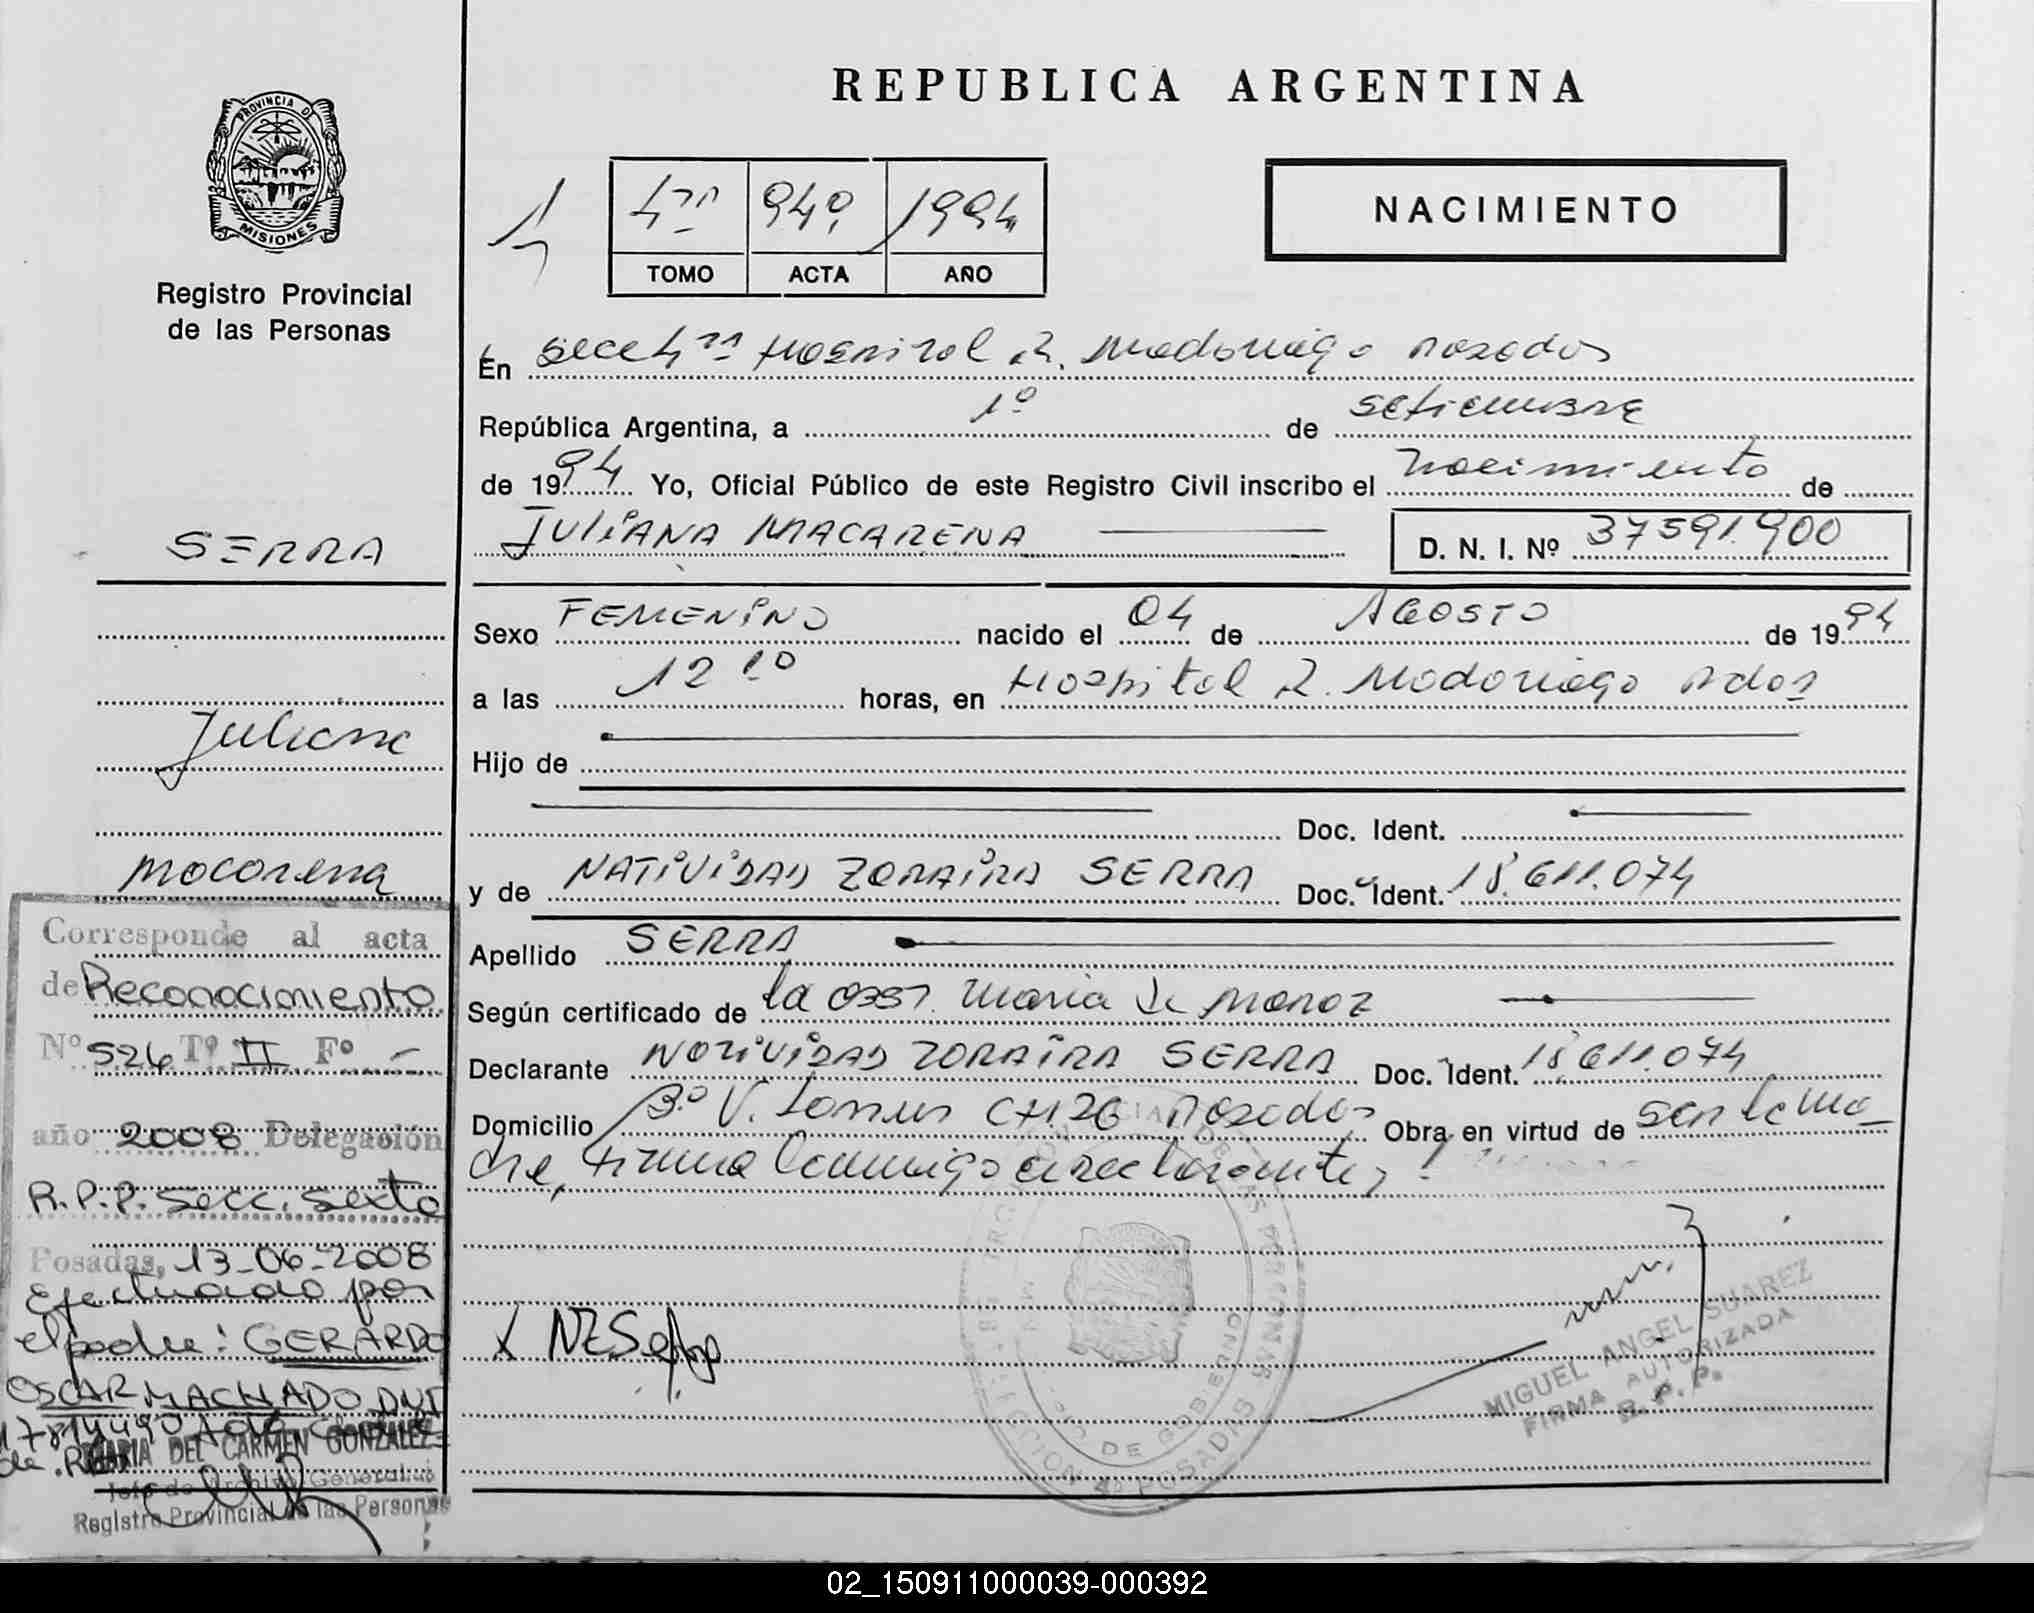 REPUBLICA ARGENTINA
PROVINCIA DE
MISIONES
Registro Provincial
de las Personas
949 1994
TOMO ACTA AÑO
NACIMIENTO
En Secc 4ta Hospital R. Madariaga Posadas
República Argentina, a 1º de setiembre
de 1994 Yo, Oficial Público de este Registro Civil inscribo el nacimiento de
JULIANA MACARENA
D. N. I. Nº 37591.900
SERRA
Juliana
Macarena
Sexo FEMENINO nacido el 04 de AGOSTO de 1994
a las 12 horas, en Hospital R. Madariaga Pdas
Hijo de
Doc. Ident.
y de NATIVIDAD ZORAIRA SERRA Doc. Ident. 18.611.074
Apellido SERRA
Según certificado de la Obst. Maria de
Declarante NATIVIDAD ZORAIRA SERRA Doc. Ident. 18.611.074
Domicilio Bº CH.26 Posadas Obra en virtud de ser la ma-
dre, firma conmigo la declarante,
Corresponde al acta
de Reconocimiento
Nº 526 Tº II Fº -
año 2008 Delegación
R.P.P. Secc. Sexta
Posadas, 13-06-2008
Efectuado por
el padre: GERARDO
OSCAR MACHADO DNI
MARIA DEL CARMEN GONZALEZ
Jefe de Archivo General
Registro Provincial de las Personas
MIGUEL ANGEL SUAREZ
FIRMA AUTORIZADA
R. P. P.
02_150911000039-000392